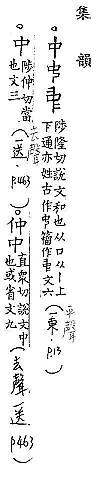 集韻
中𠁧𠁩 陟隆切說文和也从口从丨上
下通亦姓古作𠁧籀作𠁩文六(一東·p.13)
平聲
中 陟仲切當
也文三(一送·p.463)
去聲
仲中 直眾切說文中
也或省文九(去聲一送p463)